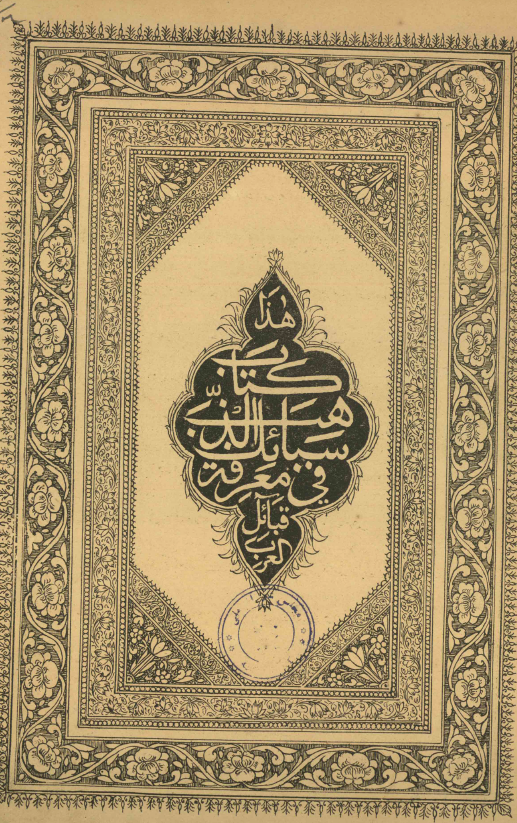 هٰذَا
كتَابُ
سَبَائِك الذَّهَب
فِي مَعْرِفَة
قبَآئل
العَرَب
مجلس ملی